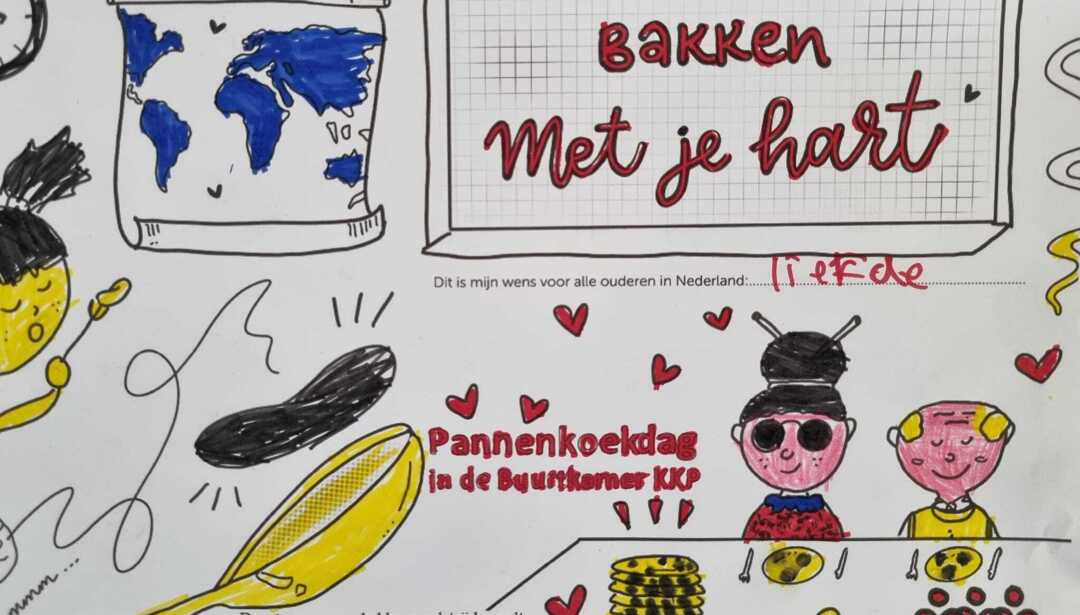 Bakken
met je hart
Dit is mijn wens voor alle ouderen in Nederland: liefde
Pannenkoekdag
in de Buurtkamer KKP
mmm ...